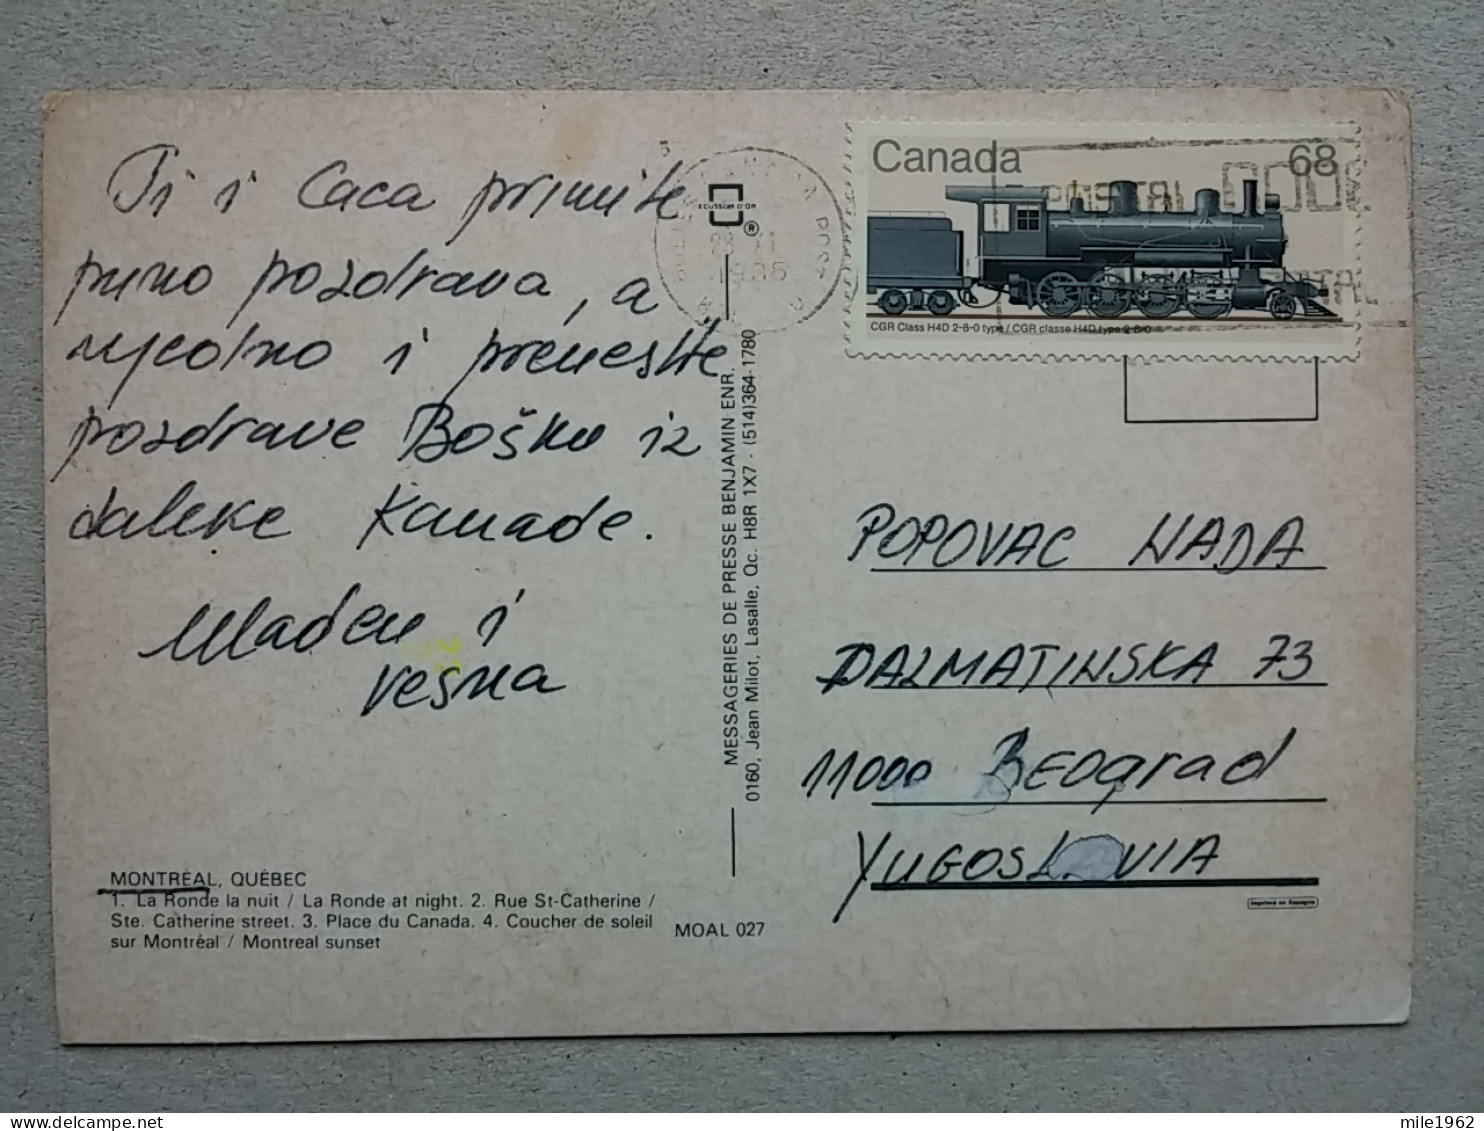 Ti i Caca primite
puno pozdrava, a
ujedno i prenesite
pozdrave Bošku iz
daleke Kanade.
Mladen i
Vesna
MONTRÉAL, QUÉBEC
1. La Ronde la nuit / La Ronde at night. 2. Rue St-Catherine /
Ste. Catherine street. 3. Place du Canada. 4. Coucher de soleil
sur Montréal / Montreal sunset
MOAL 027
ECUSSON D'OR
®
1985
MESSAGERIES DE PRESSE BENJAMIN ENR.
0160, Jean Milot, Lasalle, Qc. H8R 1X7 - (514)364-1780
Canada 68
POSTAL CODE
POSTAL
CGR Class H4D 2-8-0 type / CGR classe H4D type 2-8-0
POPOVAC NADA
DALMATINSKA 73
11000 BEOgrad
YUGOSLAVIA
Imprimé en Espagne
mile1962